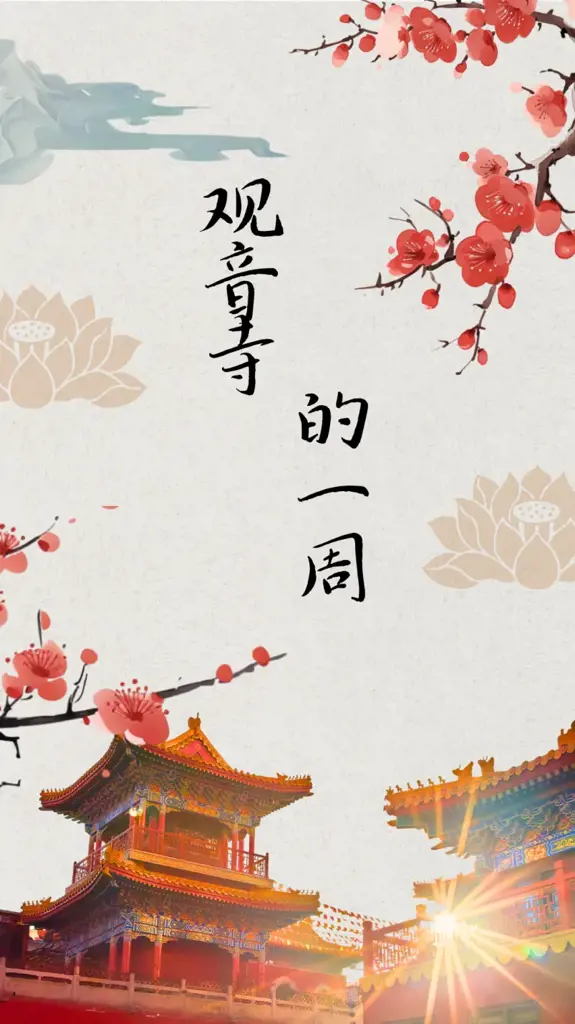 观音寺
的一周